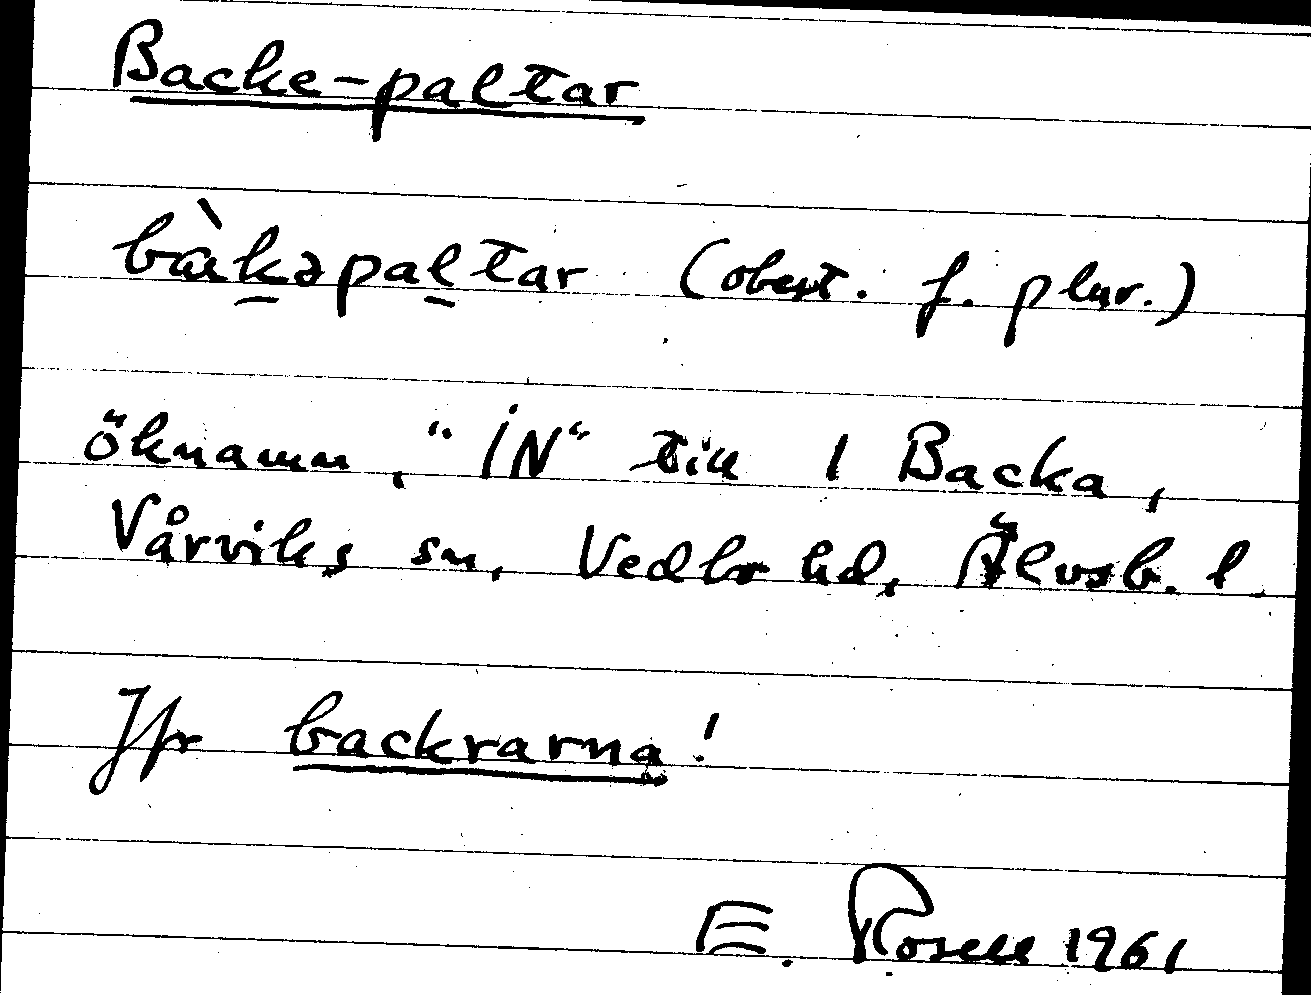 Backe-paltar
bàkəpaltar (obest. f. plur.)
öknamn, "IN" till 1 Backa,
Vårviks sn, Vedbo hd, Älvsb. l.
Jfr backrarna!
E. Rosell 1961